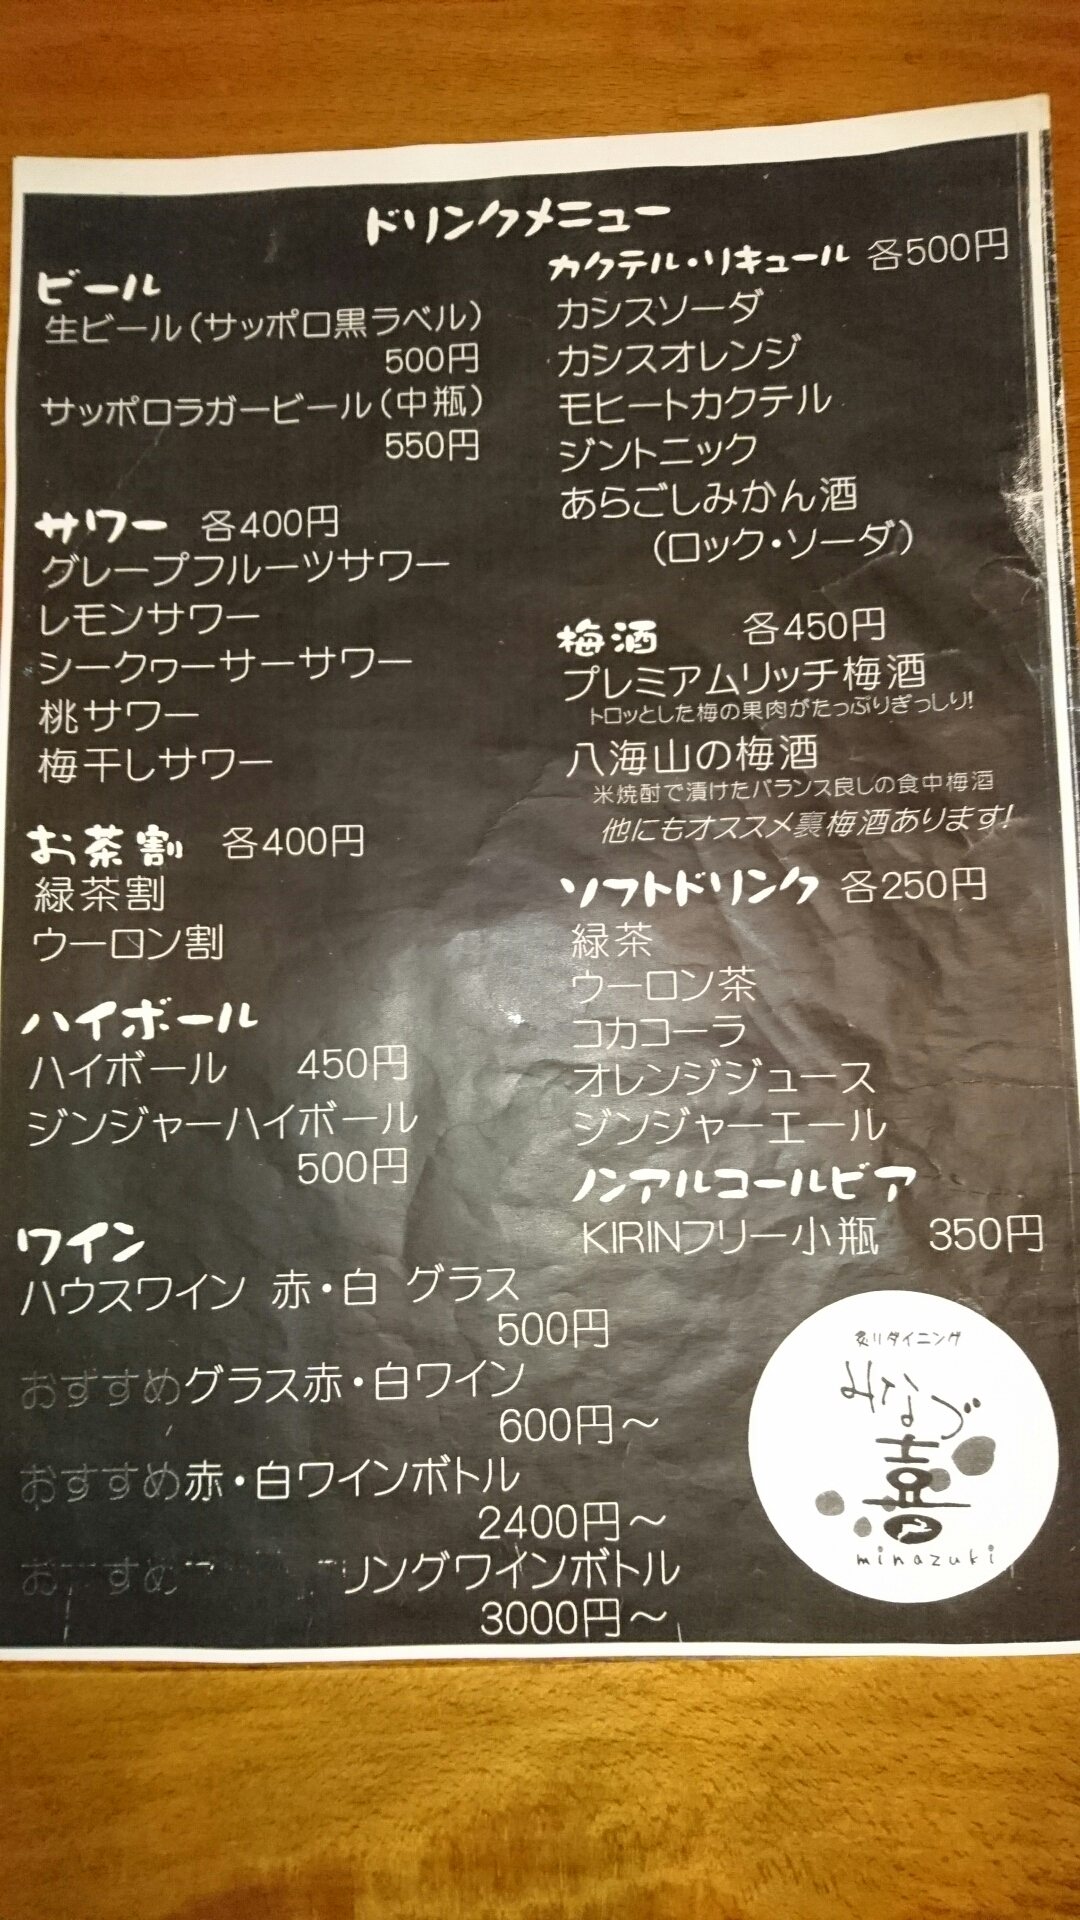 ドリンクメニュー
ビール
生ビール(サッポロ黒ラベル)
500円
サッポロラガービール(中瓶)
550円
サワー 各400円
グレープフルーツサワー
レモンサワー
シークヮーサーサワー
桃サワー
梅干しサワー
お茶割 各400円
緑茶割
ウーロン割
ハイボール
ハイボール 450円
ジンジャーハイボール
500円
ワイン
ハウスワイン 赤・白 グラス
500円
おすすめグラス赤・白ワイン
600円～
おすすめ赤・白ワインボトル
2400円～
リングワインボトル
3000円～
カクテル・リキュール 各500円
カシスソーダ
カシスオレンジ
モヒートカクテル
ジントニック
あらごしみかん酒
(ロック・ソーダ)
梅酒 各450円
プレミアムリッチ梅酒
トロッとした梅の果肉がたっぷりぎっしり!
八海山の梅酒
米焼酎で漬けたバランス良しの食中梅酒
他にもオススメ裏梅酒あります!
ソフトドリンク 各250円
緑茶
ウーロン茶
コカコーラ
オレンジジュース
ジンジャーエール
ノンアルコールビア
KIRINフリー小瓶 350円
炙りダイニング
みなづ
喜
minazuki